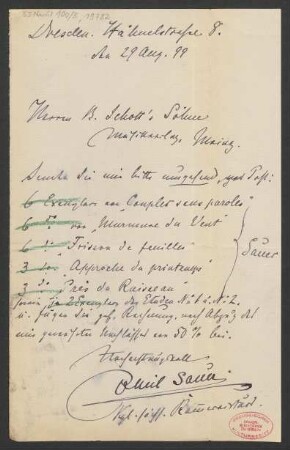 Dresden. Hähnelstraße 8.
den 29 Aug. 99
Herren B. Schott's Söhne
Musikverlag, Mainz.
Senden Sie mir bitte umgehend, per Post:
6 Exemplare von "Couplet sans paroles"
6 do. von "Murmure du Vent"
6 do. "Frisson de feuilles"
3 do. "Approche du printemps"
3 do. "Près du Ruisseau"
Sauer
sowie je Exemplar der Etüden No. 1 u. No. 2
u. fügen Sie gefl. Rechnung, nach Abzug des
mir gewährten von 50% bei.
Hochachtungsvoll
Emil Sauer
Kgl. sächs. Kammervirtuos.